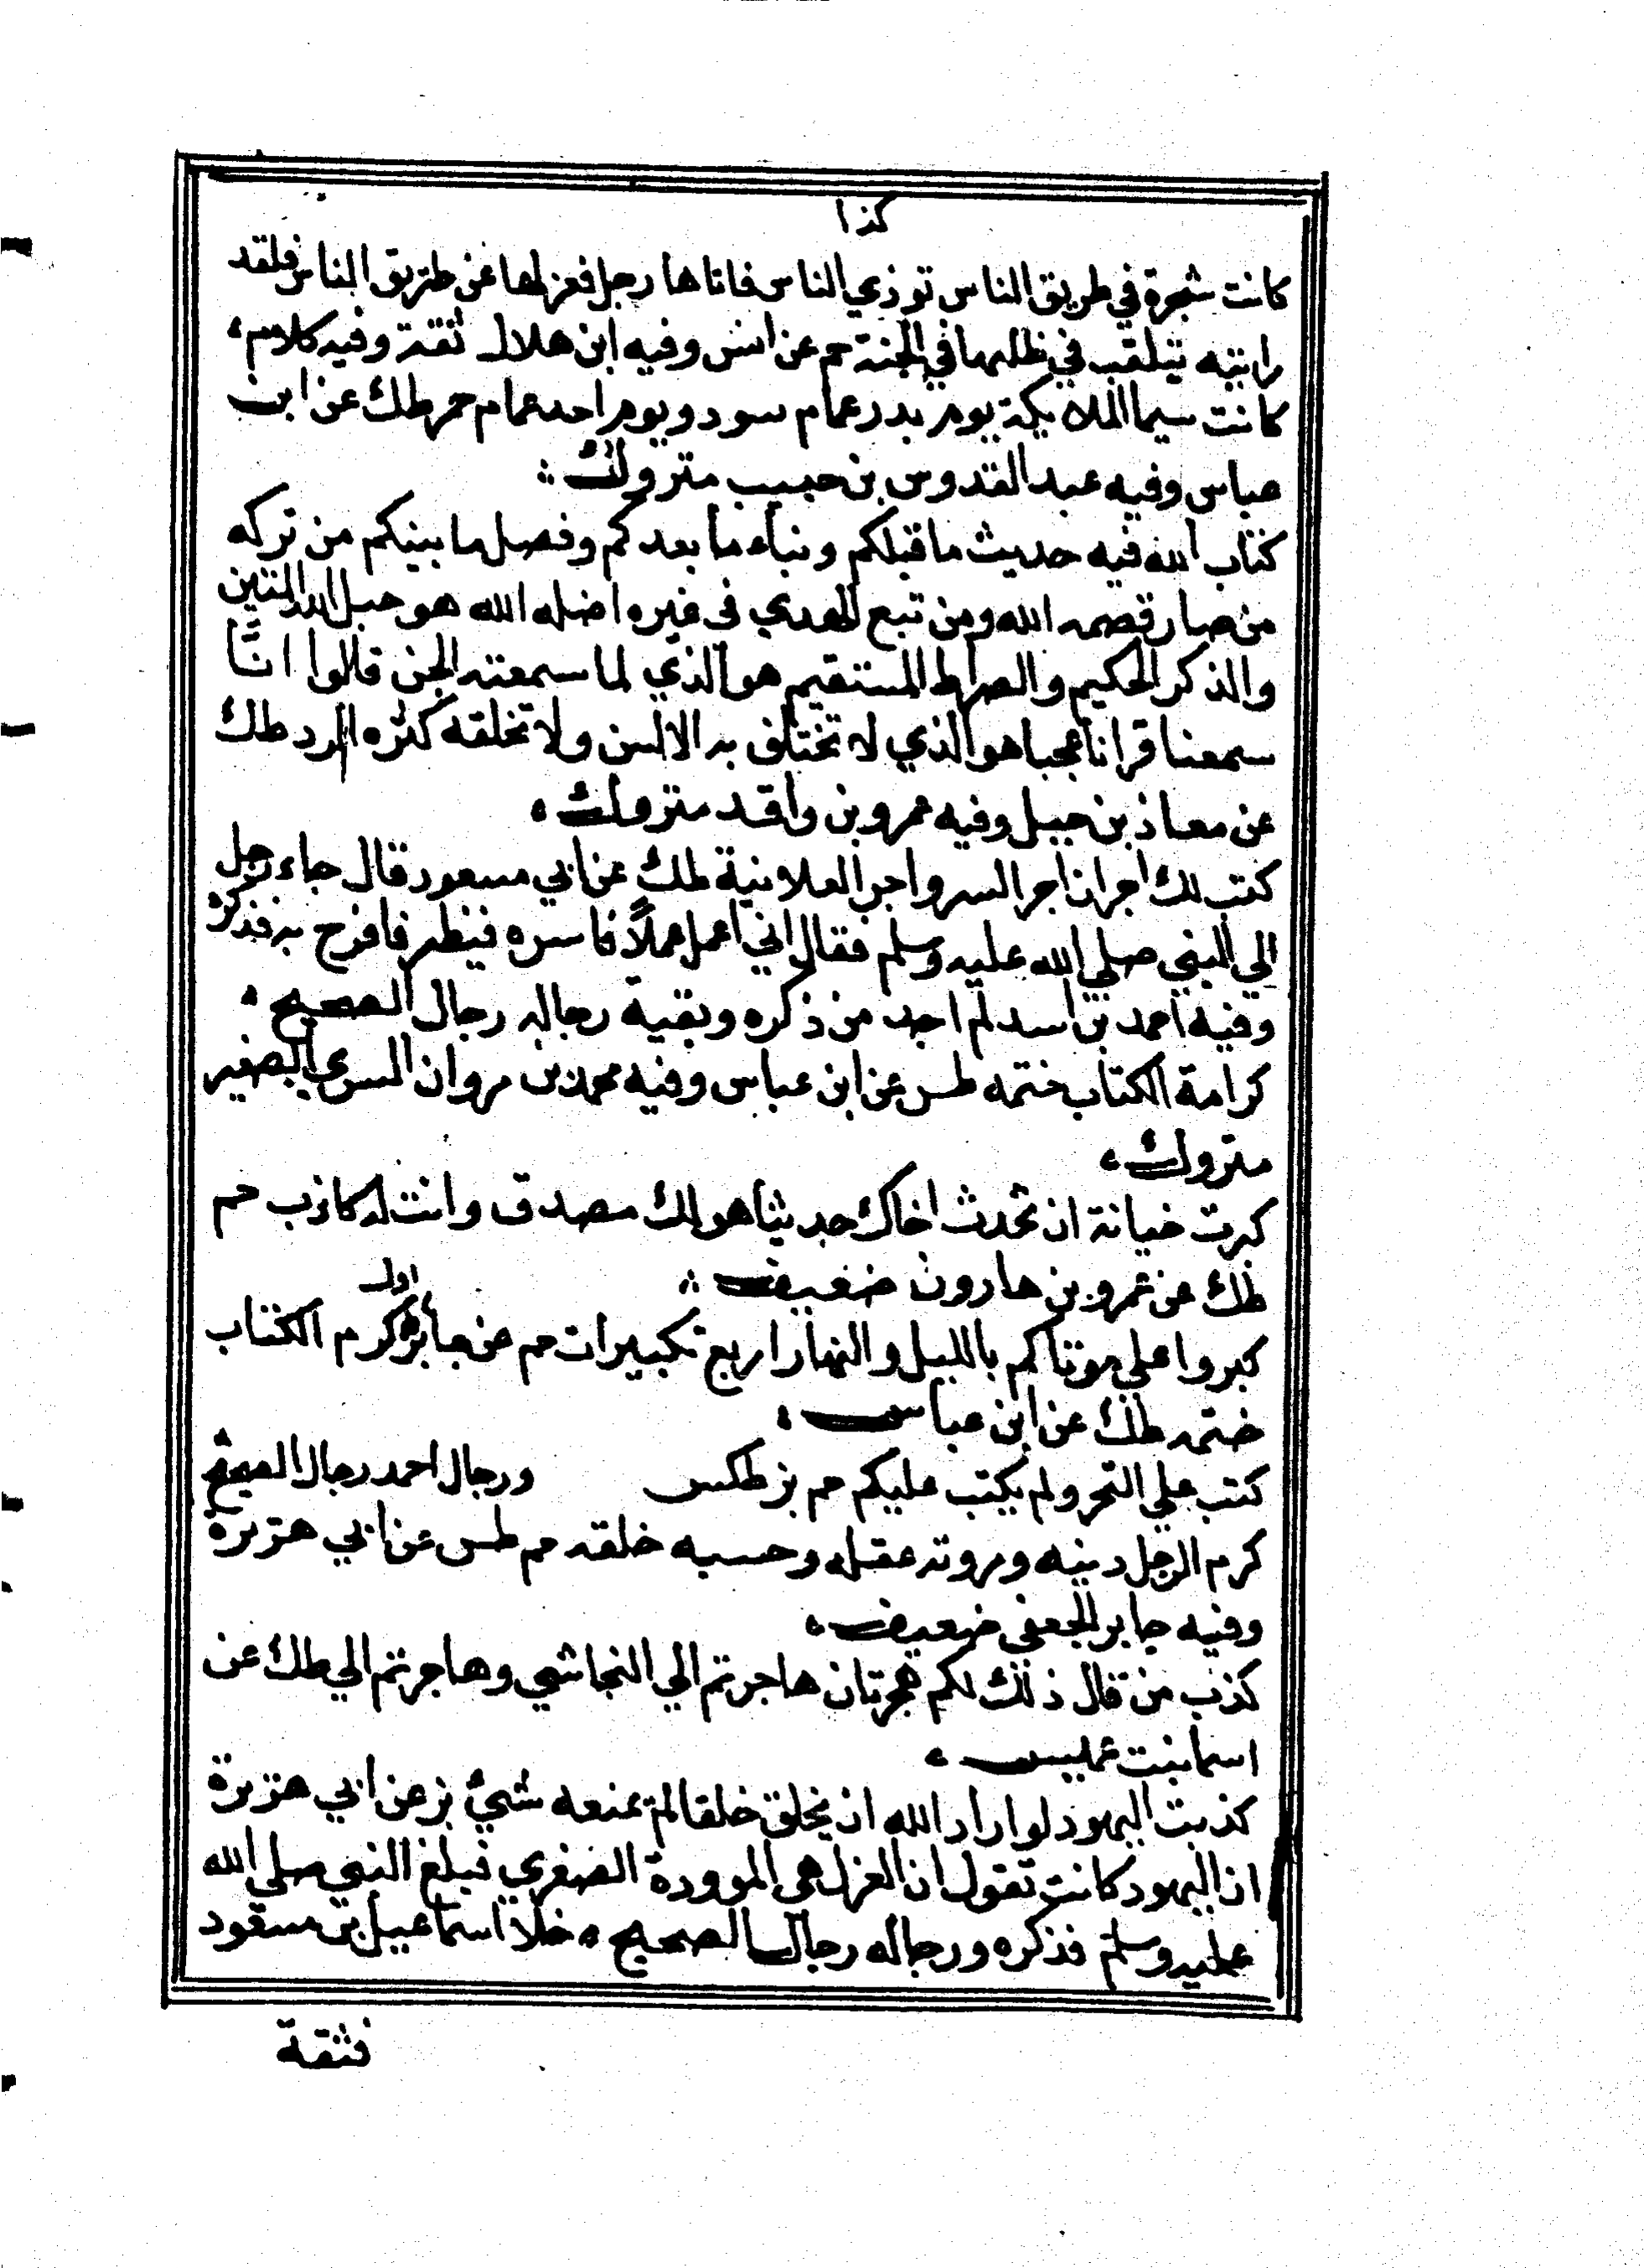 كذا
كانت شجرة في طريق الناس توذي الناس فاتاها رجل فعزلها عن طريق الناس فلقد
رايته يتلقب في ظلها في الجنة حم عن انس وفيه ابن هلال ثقة وفيه كلام،
كانت سيما الملايكة يوم بدر عمام سود ويوم احد عمام حمر طك عن ابن
عباس وفيه عبد القدوس بن حبيب متروك
كتاب الله فيه حديث ما قبلكم ونباء ما بعدكم وفصل ما بينكم من تركه
من صبار قصمه الله ومن تبع الهدي في غيره اضله الله هو حبل الله المتين
والذكر الحكيم والصراط المستقيم هو الذي لما سمعته الجن قالوا انَّا
سمعنا قرانا عجبا هو الذي لا تختلف به الالسن ولا تخلقه كثره الرد طك
عن معاذ بن جبل وفيه عمرو بن واقد متروك،
كتب لك اجران اجر السر واجر العلانية طك عن ابي مسعود قال جاء رجل
الي النبي صلي الله عليه وسلم فقال اني اعمل عملاً فاسره فيظهر فافرح به فذكره
وفيه احمد بن اسد لم اجد من ذكره وبقية رجاله رجال الصحيح،
كرامة الكتاب ختمه طس عن ابن عباس وفيه محمد بن مروان السري الصغير
متروك،
كبرت خيانة ان تحدث اخاك حديثا هو لك مصدق وانت له كاذب حم
طك عن عمرو بن هارون ضعيف
اول
كبروا علي موتاكم بالليل والنهار اربع تكبيرات حم عن جابر كرم الكتاب
ختمه طك عن ابن عباس،
كتب علي النحر ولم يكتب عليكم حم بز طكس ورجال احمد رجال الصحيح
كرم الرجل دينه ومروته عقله وحسبه خلقه حم طس عن ابي هريرة
وفيه جابر الجعفي ضعيف،
كذب من قال ذلك لكم هجرتان هاجرتم الي النجاشي وهاجرتم الي طك عن
اسما بنت عميس،
كذبت اليهود لو اراد الله ان يخلق خلقا لم يمنعه شيئ بز عن ابي هريرة
ان اليهود كانت تقول ان العزل هي الموودة الصغري فبلغ النبي صلي الله
عليه وسلم فذكره ورجاله رجال الصحيح، خلا اسماعيل بن مسعود
ثقة